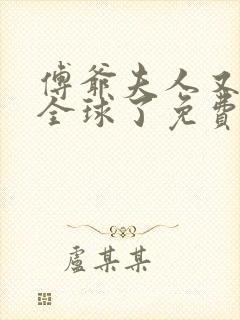 傅爺夫人又
全球了免費
盧某某